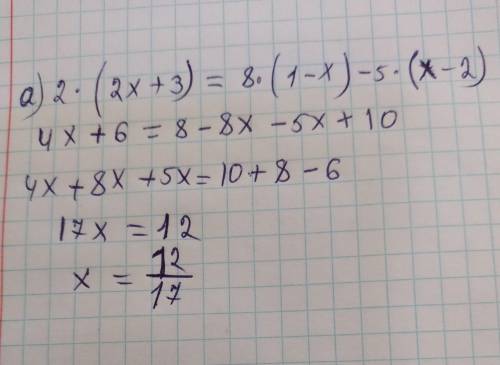 а) 2 · (2x + 3) = 8 · (1 - x) - 5 · (x - 2)
4x + 6 = 8 - 8x - 5x + 10
4x + 8x + 5x = 10 + 8 - 6
17x = 12
x = 12/17